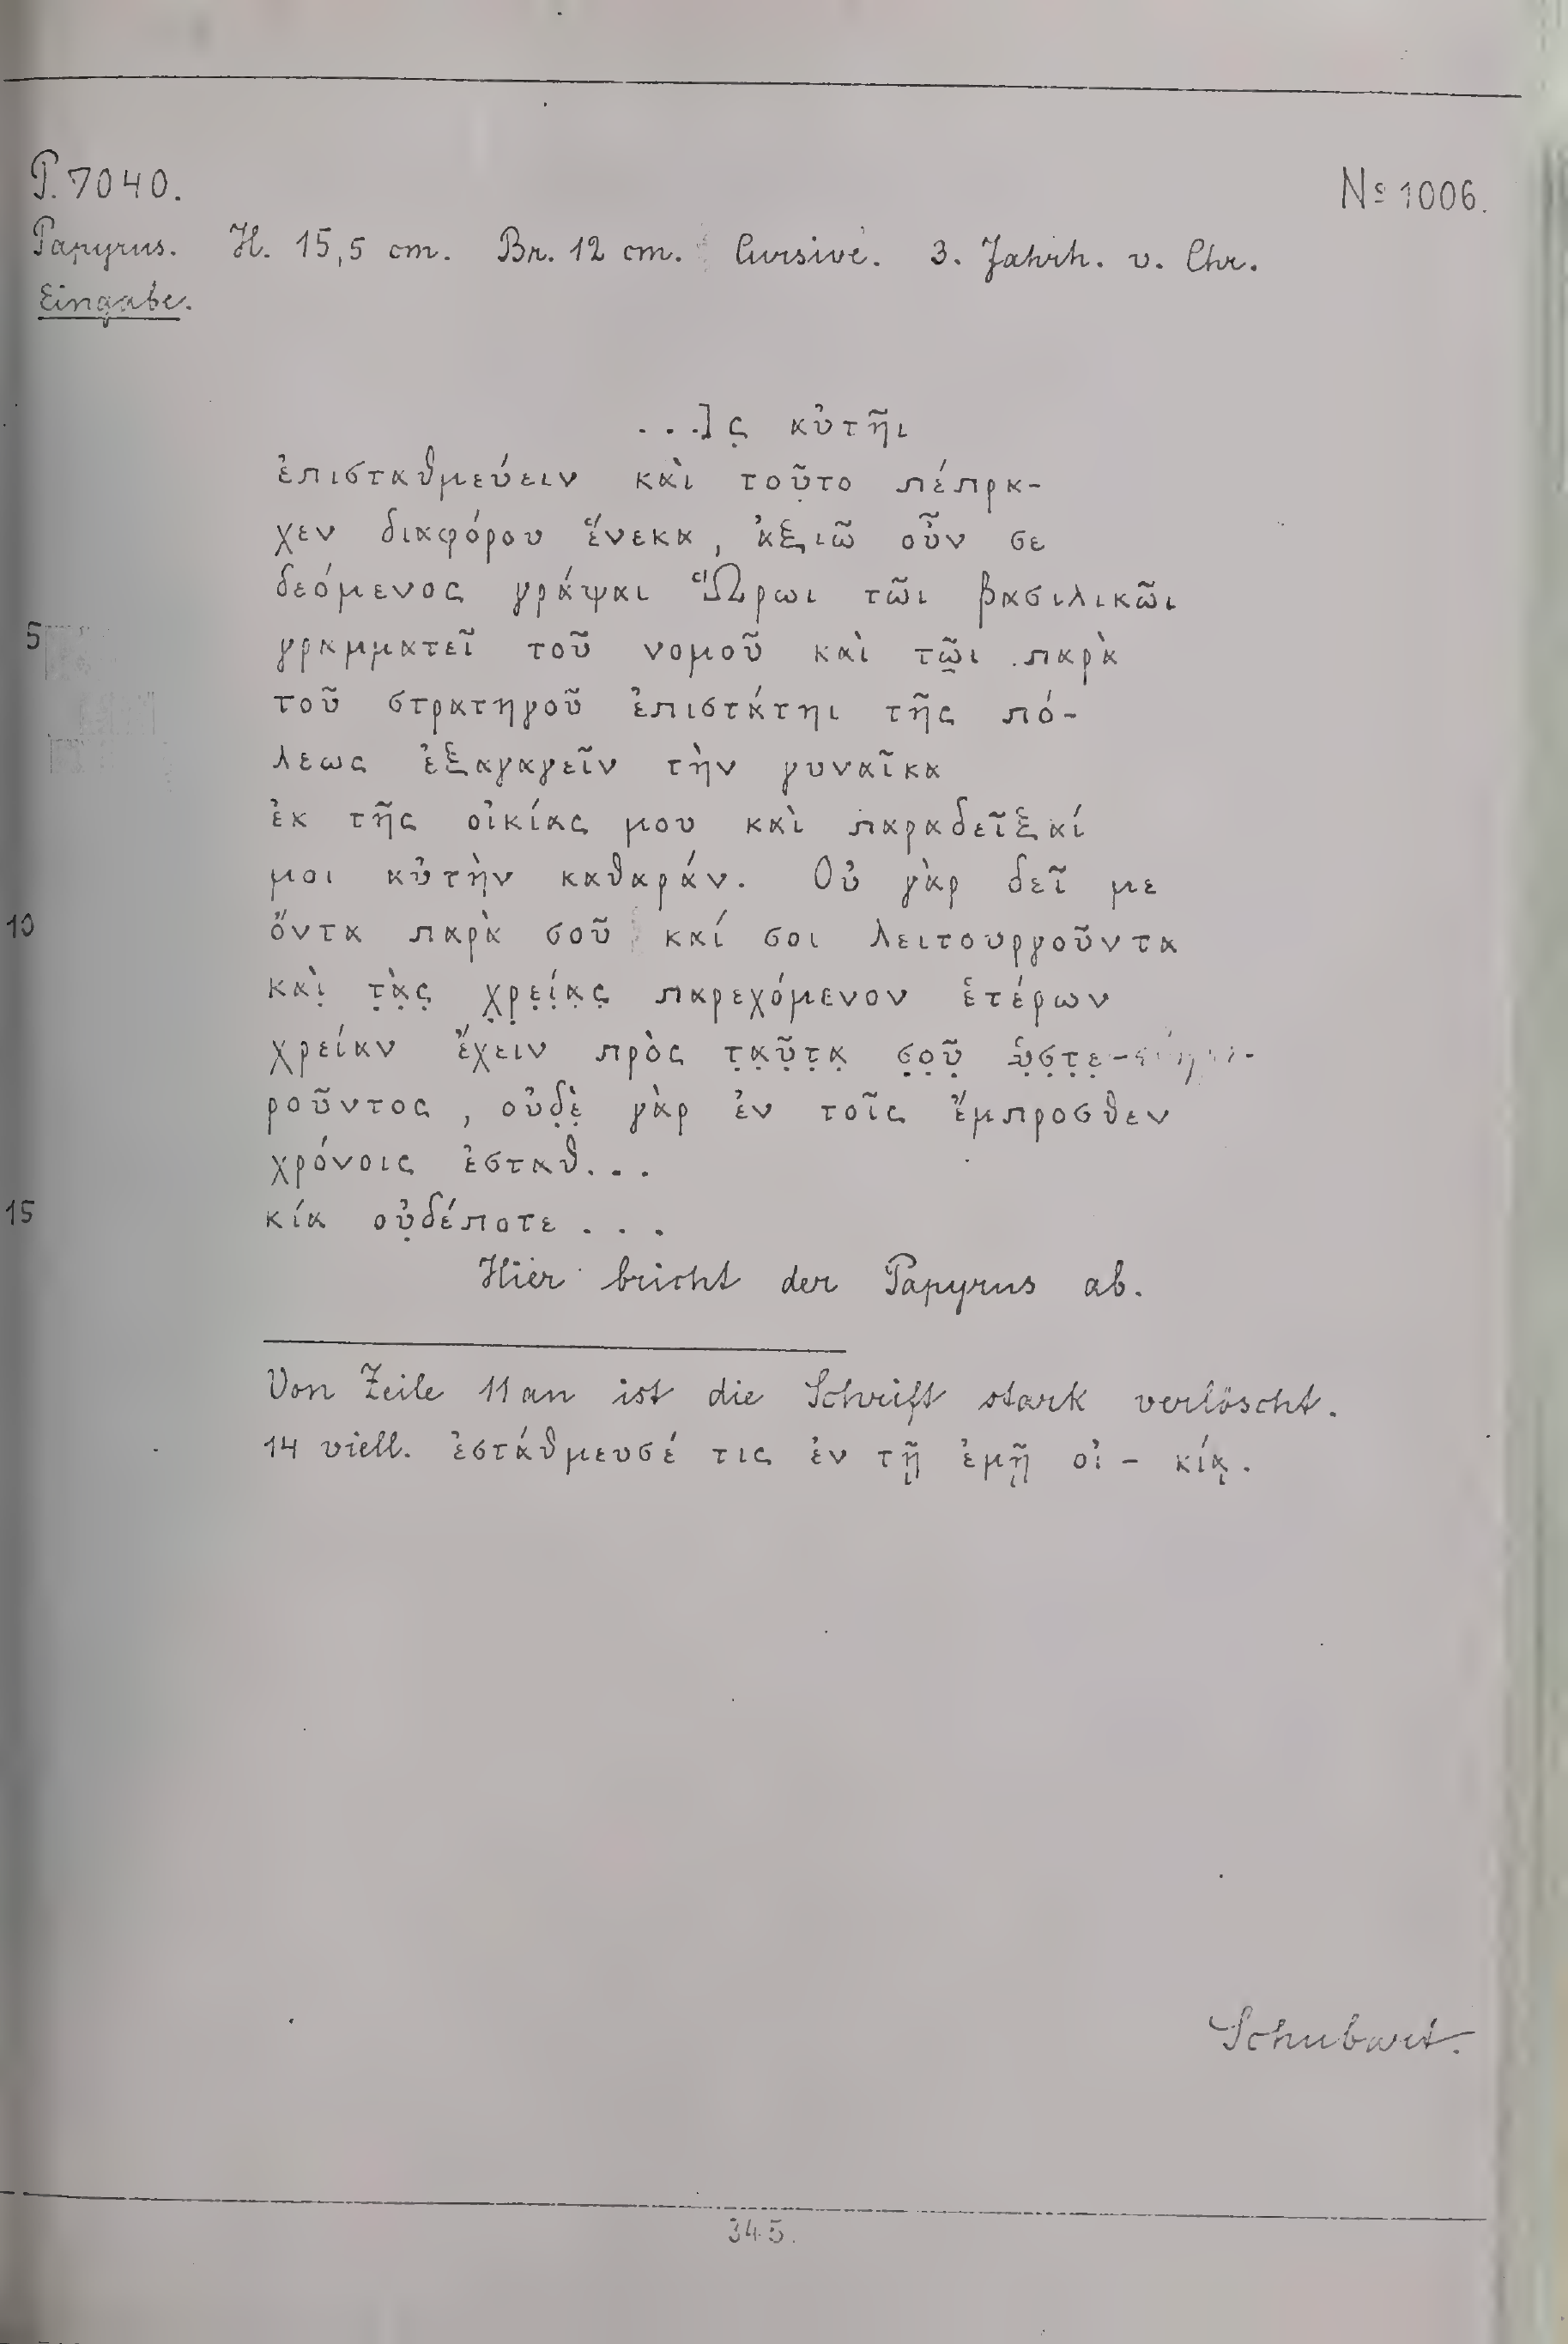 P. 7040. № 1006.
Papyrus. H. 15,5 cm. Br. 12 cm. Cursive. 3. Jahrh. v. Chr.
Eingabe.
. . .]ς̣ αὐτῆι
ἐπισταθμεύειν καὶ τοῦ̣το πέπρα-
χεν διαφόρου ἕνεκα, ἀξιῶ οὖν σε
δεόμενος γράψαι Ὥρωι τῶι βασιλικῶι
5 γραμματεῖ τοῦ νομοῦ καὶ τῶ̣ι παρὰ
τοῦ στρατηγοῦ ἐπιστάτηι τῆς πό-
λεως ἐξαγαγεῖν τὴν γυναῖκα
ἐκ τῆς οἰκίας μου καὶ παραδεῖξαί
μοι αὐτὴν καθαράν. Οὐ γὰρ δεῖ με
10 ὄντα παρὰ σοῦ καί σοι λειτουργοῦντα
καὶ̣ τ̣ὰ̣ς̣ χ̣ρ̣ε̣ί̣α̣ς̣ παρεχόμενον ἑτέρων
χρείαν ἔχειν πρὸς τ̣α̣ῦ̣τ̣α̣ σ̣ο̣ῦ̣ ὑ̣σ̣τ̣ε̣-
ροῦντος, οὐδ̣ὲ̣ γὰρ ἐν τοῖς ἔμπροσθεν
χρόνοις ἐσταθ. . .
15 κία οὐ̣δέποτε . . .
Hier bricht der Papyrus ab.
Von Zeile 11 an ist die Schrift stark verlöscht.
14 viell. ἐστάθμευσέ τις ἐν τῇ ἐμῇ οἰ - κίᾳ.
Schubart.
345.